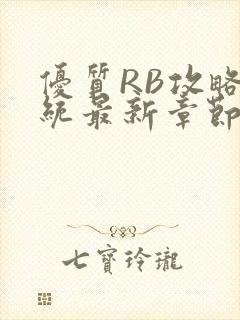 優質RB攻略
統最新章節
七寶玲瓏